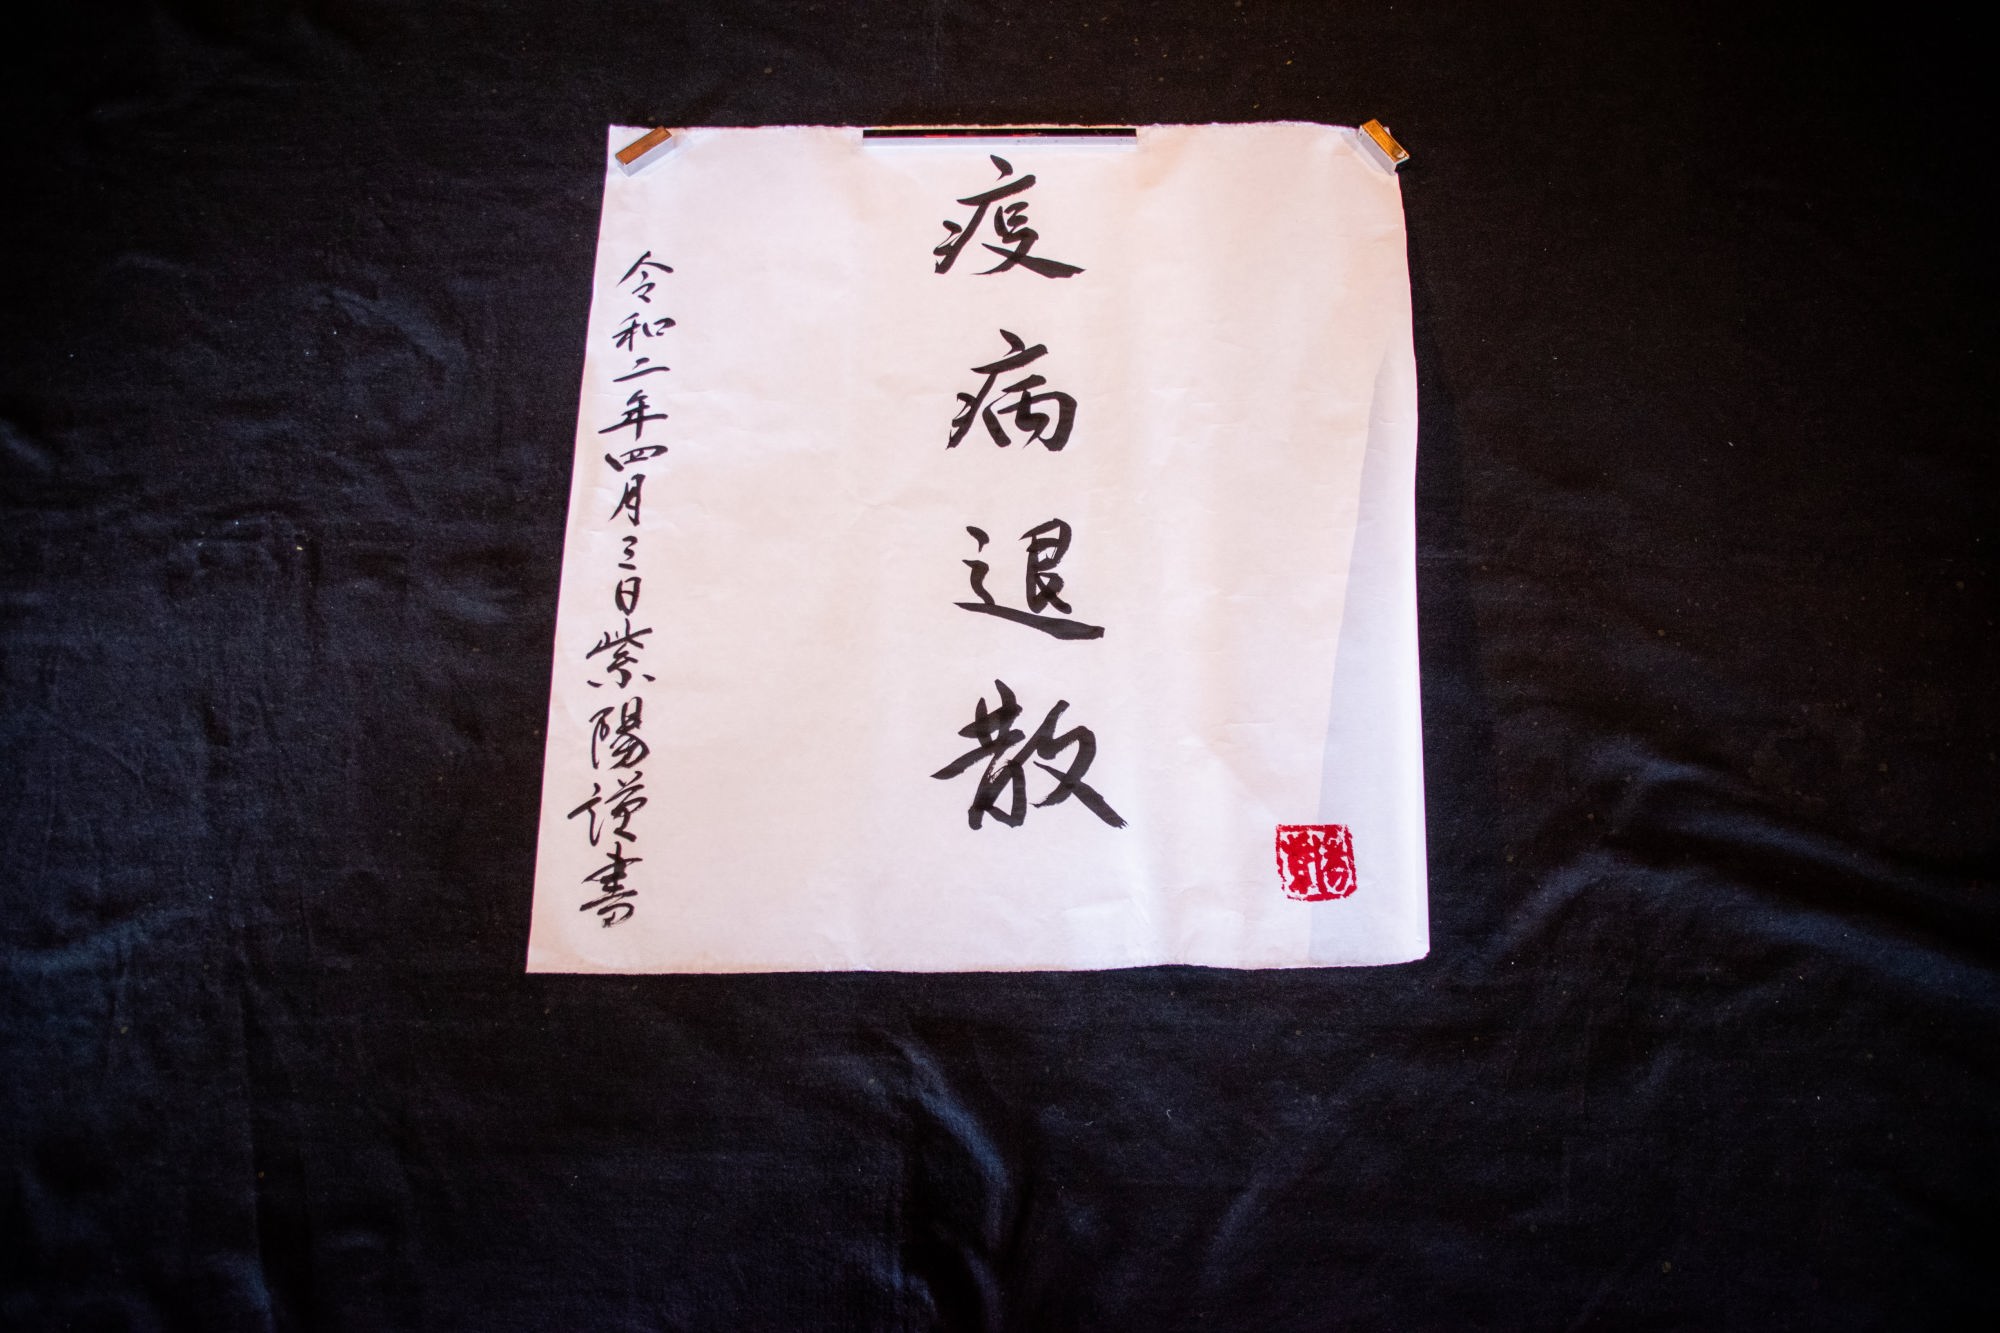 疫病退散
令和二年四月三日紫陽謹書